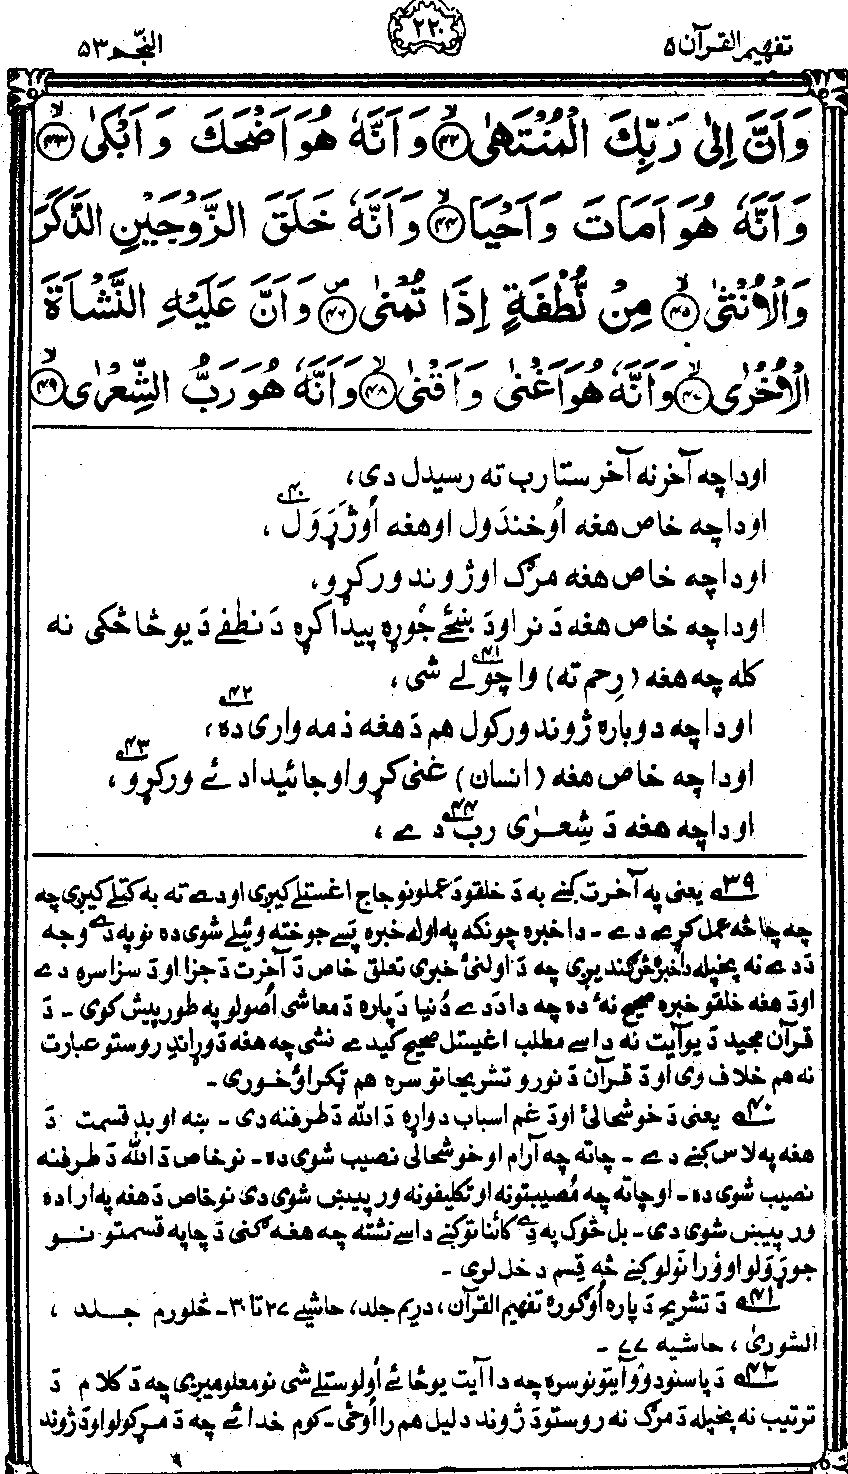 تفهيم القرآن ۵
۲۲۰
النّجم ۵۳
وَاَنَّ اِلٰى رَبِّكَ الْمُنْتَهٰىۙ﴿۴۲﴾ وَاَنَّهٗ هُوَ اَضْحَكَ وَاَبْكٰىۙ﴿۴۳﴾
وَاَنَّهٗ هُوَ اَمَاتَ وَاَحْيَاۙ﴿۴۴﴾ وَاَنَّهٗ خَلَقَ الزَّوْجَيْنِ الذَّكَرَ
وَالْاُنْثٰىۙ﴿۴۵﴾ مِنْ نُّطْفَةٍ اِذَا تُمْنٰىۖ﴿۴۶﴾ وَاَنَّ عَلَيْهِ النَّشْاَةَ
الْاُخْرٰىۙ﴿۴۷﴾ وَاَنَّهٗ هُوَ اَغْنٰى وَاَقْنٰىۙ﴿۴۸﴾ وَاَنَّهٗ هُوَ رَبُّ الشِّعْرٰىۙ﴿۴۹﴾
اودا چه آخر نه آخر ستا رب ته رسيدل دی،
اودا چه خاص هغه اُوخندَول او هغه اُوژړَوَل ۴۰،
اودا چه خاص هغه مرګ او ژوند ورکړو،
اودا چه خاص هغه دَ نر او دَ ښځے جوړه پيدا کړه دَ نطفے دَ يو څاڅکی نه
کله چه هغه (رِحم ته) واچولے شی ۴۱،
اودا چه دوباره ژوند ورکول هم دَ هغه ذمه واری ده ۴۲،
اودا چه خاص هغه (انسان) غنی کړو او جائيداد ئے ورکړو ۴۳،
اودا چه هغه دَ شِعرٰی رب دے ۴۴،
۳۹ يعنی په آخرت کښے به دَ خلقو دَ عملونو جاج اغستلے کيږی او دے ته به کتلے کيږی چه
چه چا څه عمل کړے دے ۔ دا خبره چونکه په اوله خبره پسے جوخته وئيلے شوی ده نو په دے وجه
دَ دے نه پخپله دا خبره څرګنديږی چه دَ اولنئ خبری تعلق خاص دَ آخرت دَ جزا او دَ سزا سره دے
او دَ هغه خلقو خبره صحيح نهٔ ده چه دا دَ دے دُنيا دَ پاره دَ معاشی اُصولو په طور پيش کوی ۔ دَ
قرآن مجيد دَ يو آيت نه داسے مطلب اغيستل صحيح کيدے نشی چه هغه دَ وړاندِ روستو عبارت
نه هم خلاف وی او دَ قرآن دَ نورو تشريحاتو سره هم ټکر اوخوری ۔
۴۰ يعنی دَ خوشحالئ او دَ غم اسباب دواړه دَ الله دَ طرفنه دی ۔ ښه او بد قسمت دَ
هغه په لاس کښے دے ۔ چاته چه آرام او خوشحالی نصيب شوی ده ۔ نو خاص دَ الله دَ طرفنه
نصيب شوی ده ۔ او چاته چه مُصيبتونه او تکليفونه ورپيښ شوی دی نو خاص دَ هغه په اراده
ورپيښ شوی دی ۔ بل څوک په دِے کائناتو کښے داسے نشته چه هغه ګنی دَ چا په قسمتونو
جوړولو او وُرانَولو کښے څه قسم دخل لری ۔
۴۱ دَ تشريح دَ پاره اُوګوره تفهيم القرآن، دريم جلد، حاشيے ۲۷ تا ۳۰ ۔ څلورم جلد،
الشوریٰ، حاشيه ۷۷ ۔
۴۲ دَ پاسنو دوؤ آيتونو سره چه دا آيت يوځائے اُولوستلے شی نو معلوميږی چه دَ کلام دَ
ترتيب نه پخپله دَ مرګ نه روستو دَ ژوند دليل هم رااُوځی ۔ کوم خدائے چه دَ مرګولو او دَ ژوند
۹